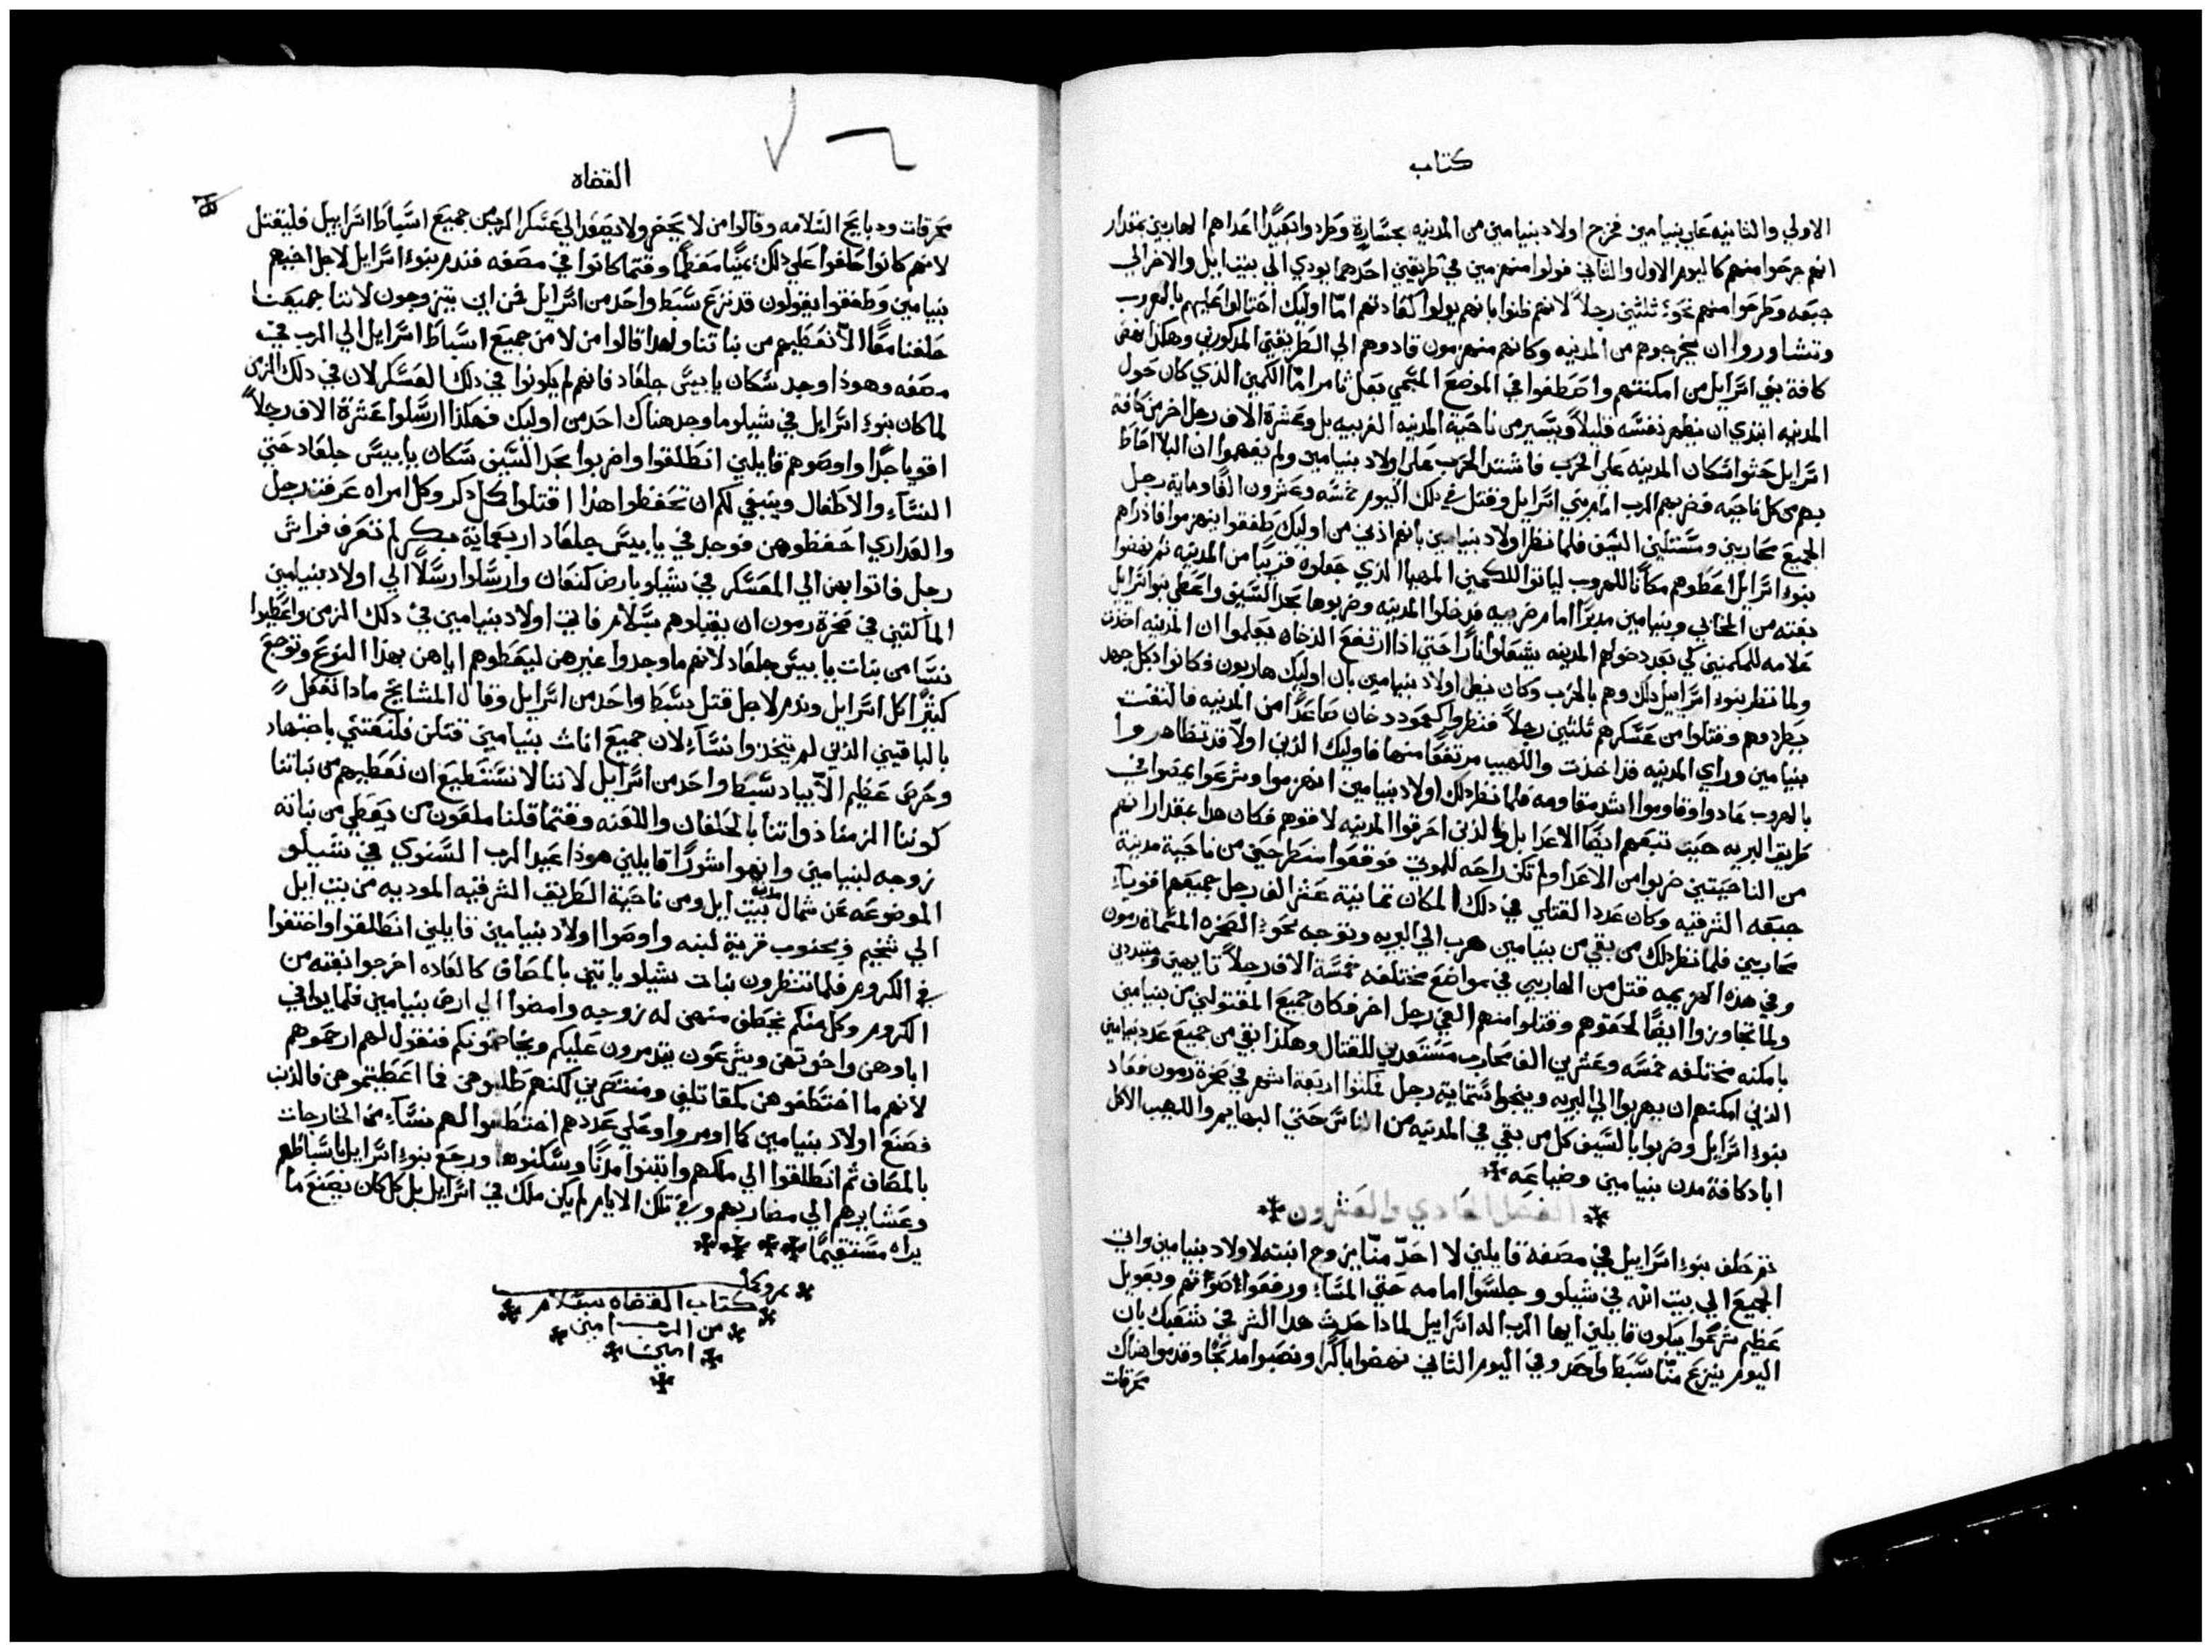 كتاب
الاولي والثانيه علي بنيامين فخرج اولاد بنيامين من المدينه بجسارة وطردوا بعيدًا اعداهم الهاربين بمقدار
انهم جرحوا منهم كاليوم الاول والثاني فولوا منهزمين في طريقين احدهما يودي الي بيت ايل والاخر الي
جبعه وطرحوا منهم نحو ثلثين رجلاً لانهم ظنوا بانهم يولوا كعادتهم امّا اوليك احتالوا عليهم بالهروب
وتشاوروا ان يخرجوهم من المدينه وكانهم منهزمون قادوهم الي الطريقين المذكورين وهكذا نهض
كافة بني اسرايل من امكنتهم واصطفوا في الموضع المسمي بعل ثامر امّا الكمين الذي كان حول
المدينه ابتدي ان يظهر نفسه قليلاً ويسير من ناحية المدينه الغربيه بل وعشرة الاف رجل اخر من كافة
اسرايل حثوا سكان المدينه علي الحرب فاشتد الحرب علي اولاد بنيامين ولم يفهموا ان البلا احاط
بهم من كل ناحيه فضربهم الرب امام بني اسرايل وقتل في ذلك اليوم خمسه وعشرون الفًا وماية رجل
الجميع محاربين ومستلين السيف فلما نظر اولاد بنيامين بانهم ادني من اوليك طفقوا ينهزموا فاذ راهم
بنو اسرايل اعطوهم مكانًا للهروب لياتوا للكمين المهيا الذي جعلوه قريبًا من المدينه ثم نهضوا
بغته من المخابي وبنيامين مدبرًا امام ضربيه فدخلوا المدينه وضربوها بحد السيف واعطي بنو اسرايل
علامه للمكمنين لكي بعد دخولهم المدينه يشعلوا نارًا حتي اذا ارتفع الدخان يعلموا ان المدينه اخذت
ولما نظر بنو اسرايبل ذلك وهم بالحرب وكان يظن اولاد بنيامين بان اوليك هاربون فكانوا بكل جهد
يطردوهم وقتلوا من عسكرهم ثلثين رجلاً فنظروا كعمود دخان صاعدًا من المدينه فالتفت
بنيامين وراي المدينه قد اخذت واللهيب مرتفعًا منها فاوليك الذين اولاً قد تظاهروا
بالهروب عادوا وقاوموا اشد مقاومه فلما نظر ذلك اولاد بنيامين انهزموا وشرعوا يمضوا في
طريق البريه حيث تبعهم ايضًا الاعدا بل والذين احرقوا المدينه لاقوهم فكان هدا بمقدار انهم
من الناحيتين ضربوا من الاعدا ولم تكن راحه للموتي فوقعوا منطرحين من ناحية مدينة
جبعه الشرقيه وكان عدد القتلي في ذلك المكان ثمانية عشر الف رجل جميعهم اقويآء
محاربين فلما نظر ذلك من بقي من بنيامين هرب الي البريه وتوجه نحو الصخره المسماه رمون
وفي هذه الهزيمه قتل من الهاربين في مواضع مختلفه خمسة الاف رجلاً تايهين ومتبددين
ولما تجاوزوا ايضًا لحقوهم وقتلوا منهم الفي رجل اخر فكان جميع المقتولين من بنيامين
بامكنه مختلفه خمسه وعشرين الف محارب مستعدين للقتال وهكذا بقي من جميع عدد بنيامين
الذين امكنهم ان يهربوا الي البريه وينجوا ستماية رجل فمكثوا اربعة اشهر في صخرة رمون فعاد
بنو اسرايل وضربوا بالسيف كل من بقي في المدينه من الناس حتي البهايم واللهيب الاكل
اباد كافة مدن بنيامين وضياعه
الفصل الحادي والعشرون
ثم حلف بنو اسراييل في مصفه قايلين لا احدّ منّا يزوج ابنته لاولاد بنيامين واتي
الجميع الي بيت الله في شيلو وجلسوا امامه حتي المسا ورفعوا اصواتهم وبعويل
عظيم شرعوا يبكون قايلين ايها الرب اله اسراييل لماذا حدث هدا الشر في شعبك بان
اليوم ينزع منّا سبط واحد وفي اليوم الثاني نهضوا باكرًا ونصبوا مدبحًا وقدموا هناك
محرقات
القضاه
محرقات ودبايح السلامه وقالوا من لا يحضر ولا يصعد الي عسكر الرب من جميع اسباط اسراييل فليقتل
لانهم كانوا حلفوا علي ذلك يمينًا معظمًا وقتما كانوا في مصفه فندم بنو اسرايل لاجل اخيهم
بنيامين وطفقوا يقولون قد نزع سبط واحد من اسرايل فمن اين يتزوجون لاننا جميعنا
حلفنا معًا الاّ نعطيهم من بناتنا ولهدا قالوا من لا من جميع اسباط اسرايل الي الرب في
مصفه وهوذا وجد سكان يابيس جلعاد فانهم لم يكونوا في ذلك العسكر لان في ذلك الزمن
لما كان بنو اسرايل في شيلو ما وجد هناك احد من اوليك فهكذا ارسلوا عشرة الاف رجلاً
اقويا جدًا واوصوهم قايلين انطلقوا واضربوا بحد السيف سكان يابيس جلعاد حتي
النسآء والاطفال وينبغي لكم ان تحفظوا هذا اقتلوا كل ذكر وكل امراه عرفت رجل
والعداري احفظوهن فوجد في يابيس جلعاد اربعماية بكر لم تعرف فراش
رجل فاتوا بهن الي المعسكر في شيلو بارض كنعان وارسلوا رسلاً الي اولاد بنيامين
الماكثين في صخرة رمون ان يقبلوهم بسلام فاتي اولاد بنيامين في ذلك الزمن واعطيوا
نسًا من بنات يابيس جلعاد لانهم ما وجدوا غيرهن ليعطوهم اياهن بهذا النوع وتوجع
كثيرًا كل اسرايل وندم لاجل قتل سبط واحد من اسرايل وقال المشايخ مادا نفعل
بالباقيين الذين لم يتخدوا نسآء لان جميع اناث بنيامين قتلن فلنعتني باجتهاد
وحرص عظيم الاّ يباد سبط واحد من اسرايل لاننا لا نستطيع ان نعطيهم من بناتنا
كوننا الزمنا ذواتنا بالحلفان واللعنه وقتما قلنا ملعون من يعطي من بناته
زوجه لبنيامين وابهوا شورًا قايلين هوذا عيد الرب السنوي في شيلو
الموضوعه عن شمال مدينة بيت ايل ومن ناحية الطريق الشرقيه الموديه من بيت ايل
الي شخيم وبجنوب قرية لبنه واوصوا اولاد بنيامين قايلين انطلقوا واختفوا
في الكروم فلما تنظرون بنات شيلو ياتين بالمصاف كالعاده اخرجوا بغته من
الكروم وكل منكم يخطف منهن له زوجه وامضوا الي ارض بنيامين فلما يوافي
اباوهن واخوتهن ويشرعون يتدمرون عليكم ويخاصمونكم فنقول لهم ارحموهم
لانهم ما اختطفوهن كمقاتلين ومنتصرين لكنهم طلبوهن فما اعطيتموهن فالذنب
فصنع اولاد بنيامين كما اومروا وعلي عددهم اختطفوا لهم نسآء من الخارجات
بالمصاف ثم انطلقوا الي ملكهم وابتنوا مدنًا وسكنوها ورجع بنو اسرايل باسباطهم
وعشايرهم الي مضاربهم وفي تلك الايام لم يكن ملك في اسرايل بل كل كان يصنع ما
يراه مستقيمًا
كتاب القضاه بسلام
من الرب امين
امين